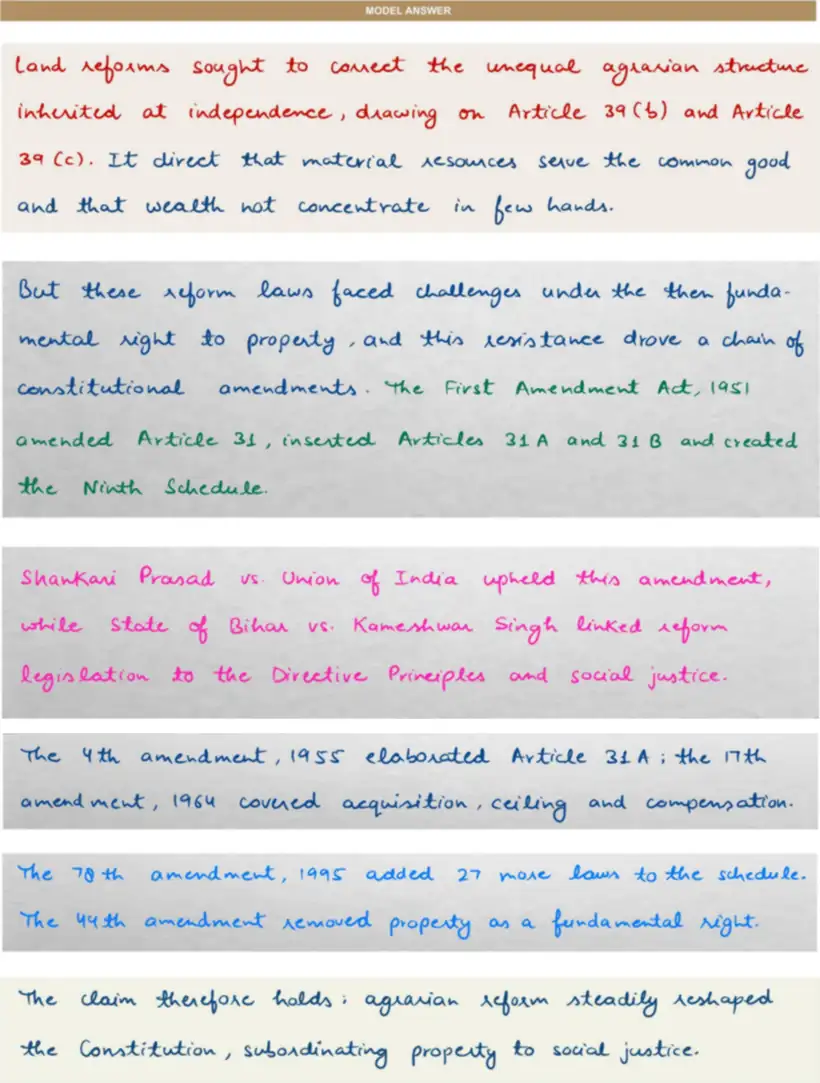 MODEL ANSWER
Land reforms sought to correct the unequal agrarian structure
inherited at independence, drawing on Article 39(b) and Article
39 (c). It direct that material resources serve the common good
and that wealth not concentrate in few hands.
But these reform laws faced challenges under the then funda-
mental right to property, and this resistance drove a chain of
constitutional amendments. The First Amendment Act, 1951
amended Article 31, inserted Articles 31A and 31B and created
the Ninth Schedule.
Shankari Prasad vs. Union of India upheld this amendment,
while State of Bihar vs. Kameshwar Singh linked reform
legislation to the Directive Principles and social justice.
The 4th amendment, 1955 elaborated Article 31A; the 17th
amendment, 1964 covered acquisition, ceiling and compensation.
The 78th amendment, 1995 added 27 more laws to the schedule.
The 44th amendment removed property as a fundamental right.
The claim therefore holds; agrarian reform steadily reshaped
the Constitution, subordinating property to social justice.